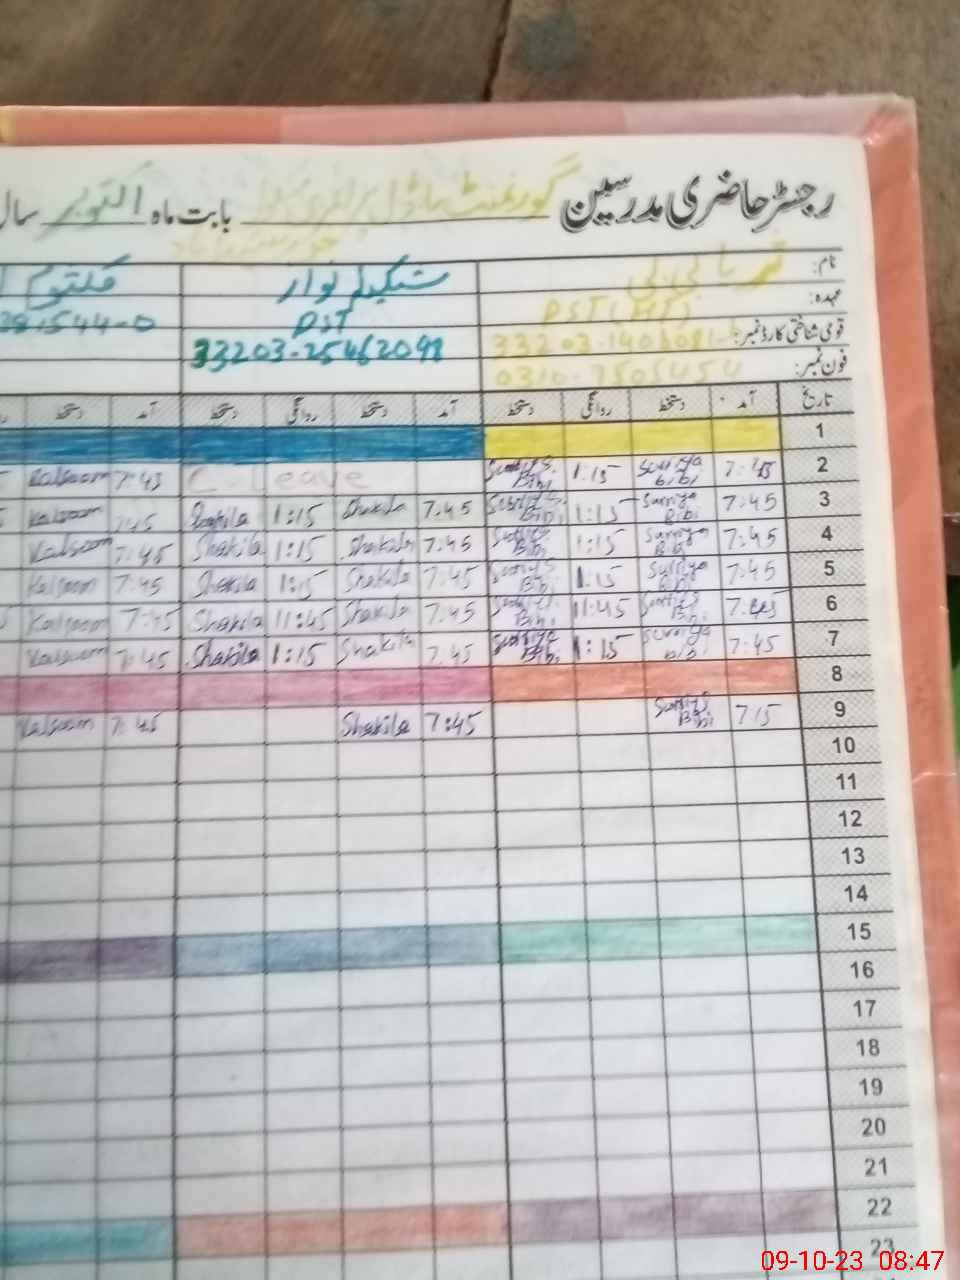 رجسٹر حاضری مدرسین گورنمنٹ ماڈل پرائمری بابت ماہ اکتوبر سال
نام: ثریا بی بی شکیلہ نواز کلثوم
عہدہ: PST (HT) PST 381544-0
قومی شناختی کارڈ نمبر: 33203-1408681- 33203-2546209
فون نمبر: 0310-7505454
تاریخ آمد دستخط روانگی دستخط آمد دستخط روانگی دستخط آمد دستخط
1
2 7:45 Surriya Bibi 1:15 Surriya Bibi C. Leave 7:45 Kalsoom
3 7:45 Surriya Bibi 1:15 Surriya Bibi 7:45 Shakila 1:15 Shakila 7:45 Kalsoom
4 7:45 Surriya Bibi 1:15 Surriya Bibi 7:45 Shakila 1:15 Shakila 7:45 Kalsoom
5 7:45 Surriya Bibi 1:15 Surriya Bibi 7:45 Shakila 1:15 Shakila 7:45 Kalsoom
6 7:45 Surriya Bibi 11:45 Surriya Bibi 7:45 Shakila 11:45 Shakila 7:45 Kalsoom
7 7:45 Surriya Bibi 1:15 Surriya Bibi 7:45 Shakila 1:15 Shakila 7:45 Kalsoom
8
9 7:15 Surriya Bibi 7:45 Shakila 7:45 Kalsoom
10
11
12
13
14
15
16
17
18
19
20
21
22
23
09-10-23 08:47